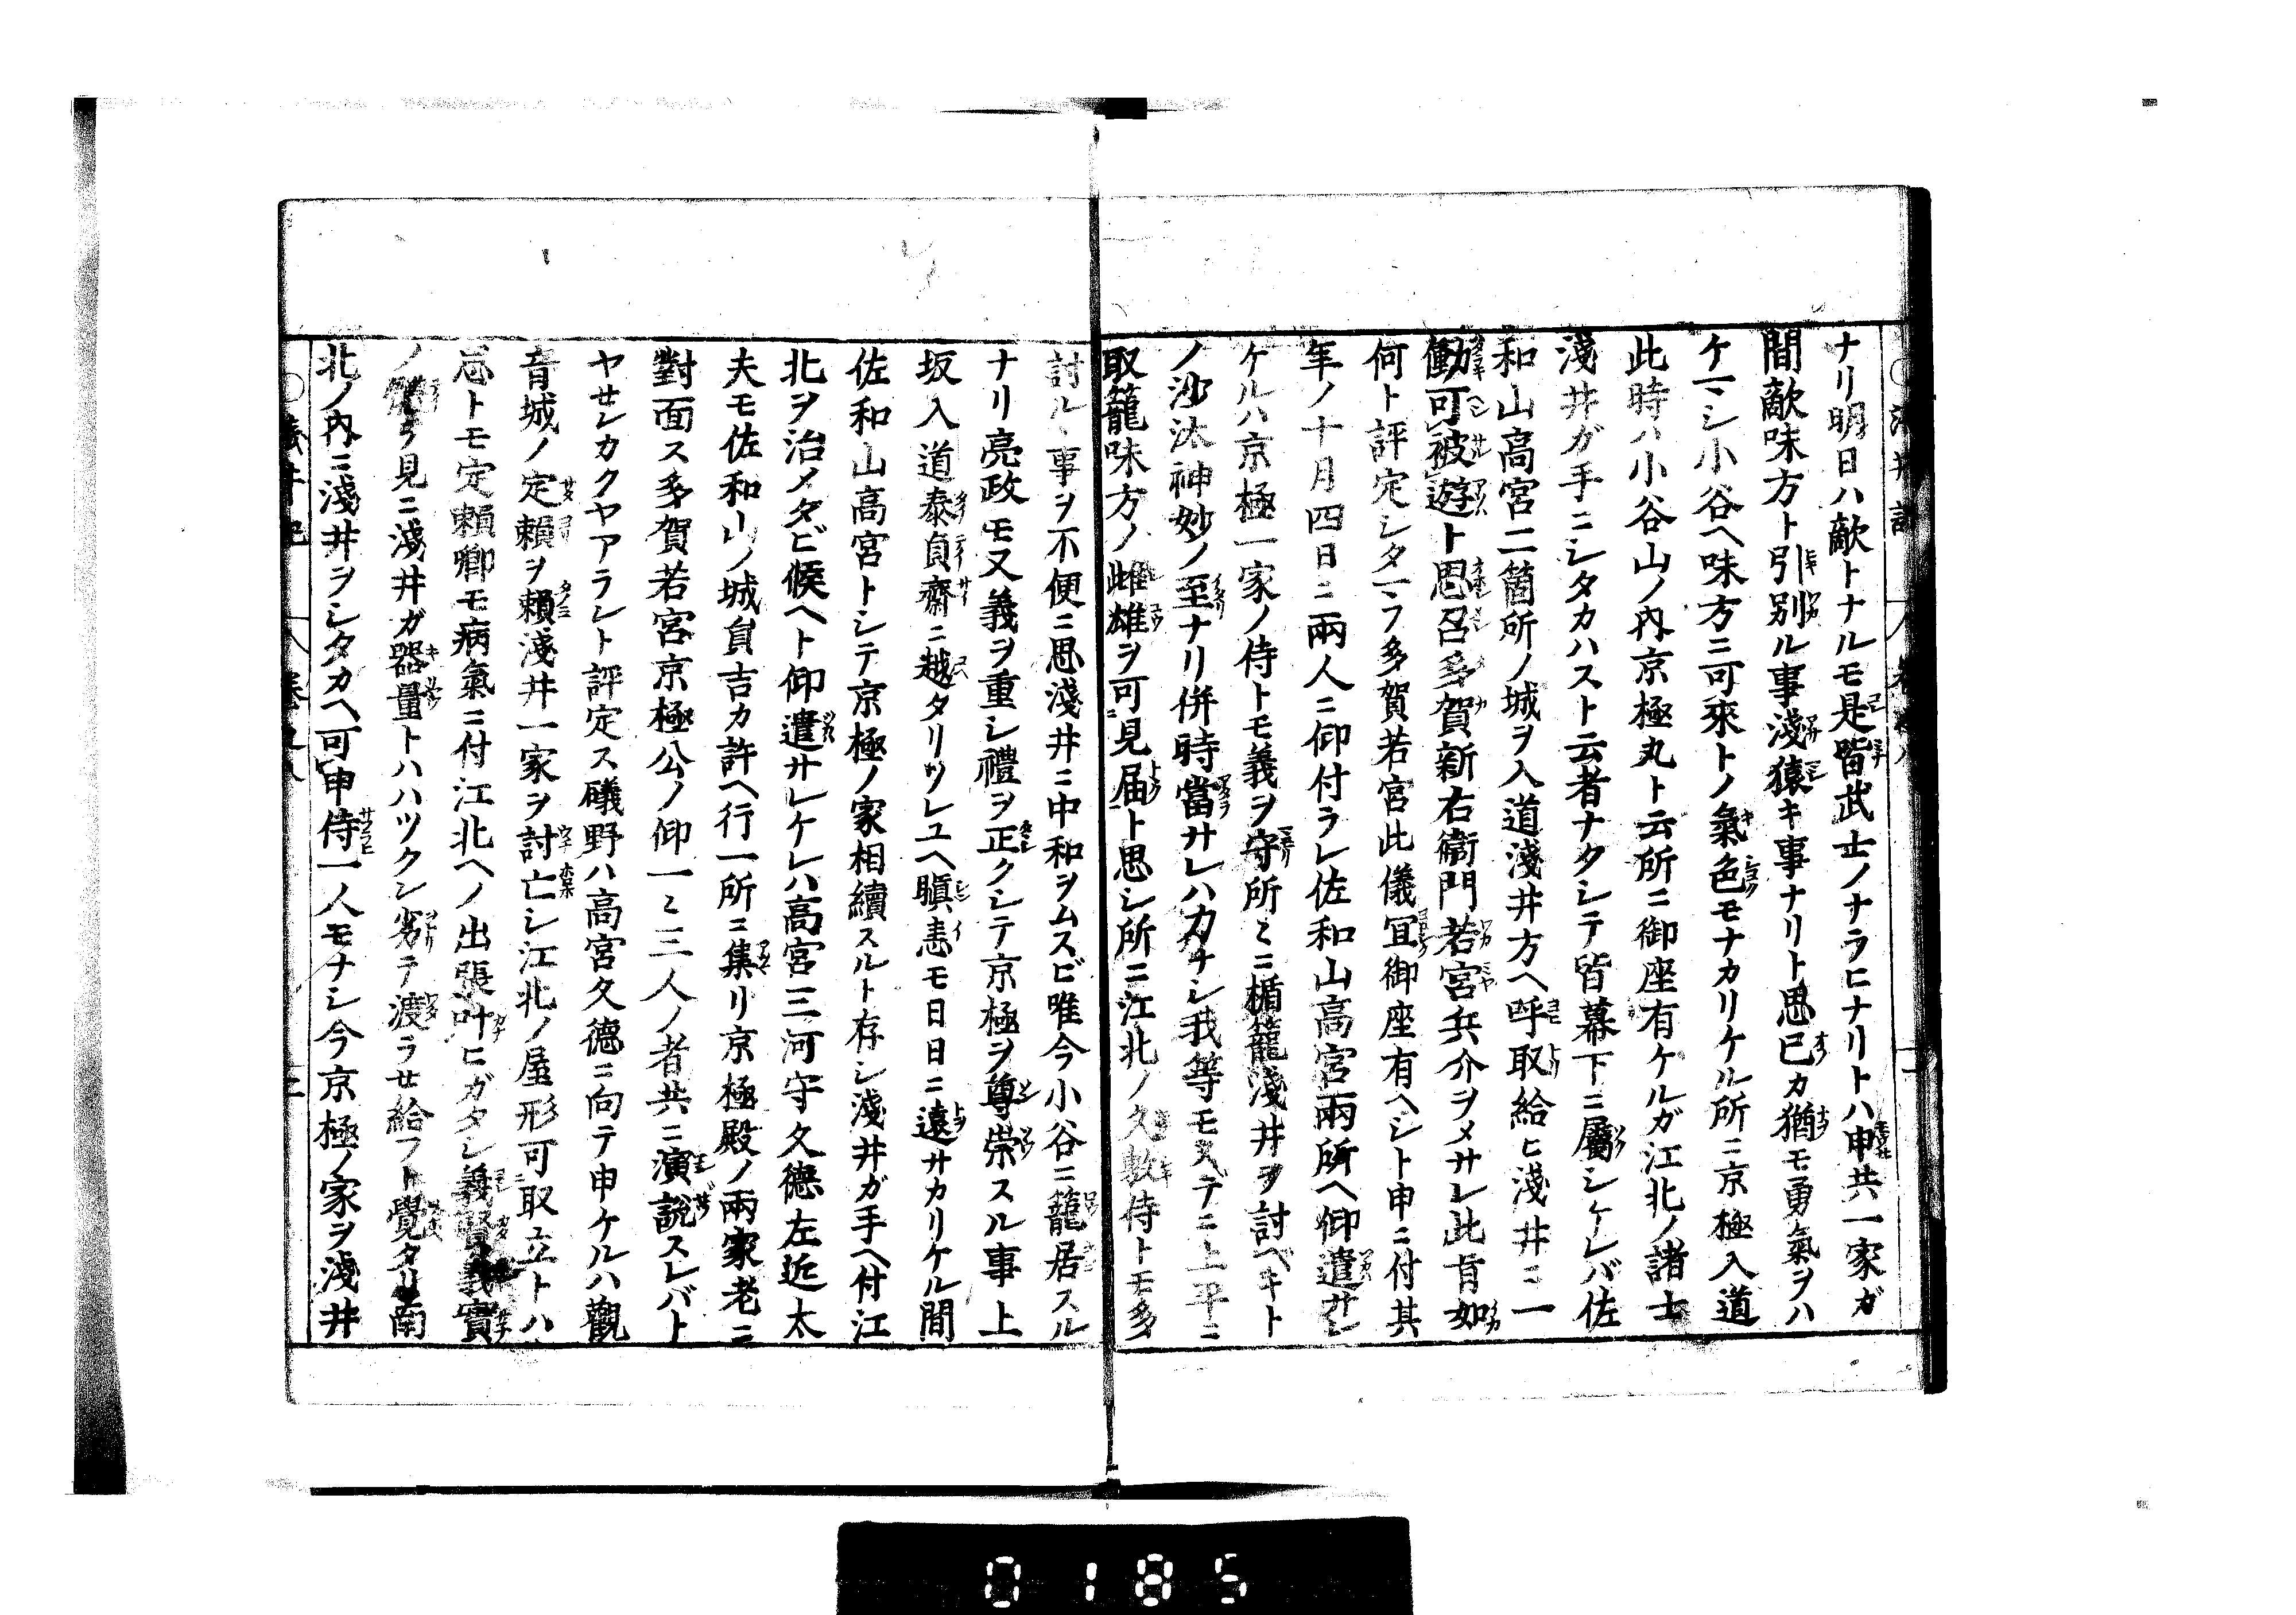 ナリ明日ハ敵トナルモ是皆武士ノナラヒナリトハ申共一家ガ
間敵味方ト引別ル事淺猿キ事ナリト思已カ猶モ勇氣ヲハ
ケマシ小谷ヘ味方ニ可來トノ氣色モナカリケル所ニ京極入道
此時ハ小谷山ノ内京極丸ト云所ニ御座有ケルガ江北ノ諸士
淺井ガ手ニシタカハスト云者ナタシテ皆幕下ニ屬シケレバ佐
和山高宮二箇所ノ城ヲ入道淺井方ヘ呼取給ヒ淺井ニ一
働可被遊ト思召多賀新右衞門若宮兵介ヲメサレ此旨如
何ト評定シタマフ多賀若宮此儀冝御座有ヘシト申ニ付其
年ノ十月四日ニ兩人ニ仰付ラレ佐和山高宮兩所ヘ仰遣サレ
ケルハ京極一家ノ侍トモ義ヲ守所々ニ楯籠淺井ヲ討ベキト
ノ沙汰神妙ノ至ナリ併時當サレハ力ナシ我等モ ニ上平ニ
取籠味方ノ雌雄ヲ可見届ト思シ所ニ江北ノ久敷侍トモ多
討ル事ヲ不便ニ思淺井ニ中和ヲムスビ唯今小谷ニ籠居スル
ナリ亮政モ又義ヲ重シ禮ヲ正クシテ京極ヲ尊崇スル事上
坂入道泰貞齋ニ越タリツレユヘ瞋恚モ日日ニ遠サカリケル間
佐和山高宮トシテ京極ノ家相續スルト存シ淺井ガ手ヘ付江
北ヲ治メタビ候ヘト仰遣サレケレハ高宮三河守久德左近太
夫モ佐和山ノ城貟吉カ許ヘ行一所ニ集リ京極殿ノ兩家老ニ
對面ス多賀若宮京極公ノ仰一々三人ノ者共ニ演說スレバト
ヤセレカクヤアラレト評定ス礒野ハ高宮久德ニ向テ申ケルハ觀
音城ノ定賴ヲ賴淺井一家ヲ討亡シ江北ノ屋形可取立トハ
忍トモ定賴卿モ病氣ニ付江北ヘノ出張叶ヒガタシ義賢義實
ノ ヲ見ニ淺井ガ器量トハハツクン劣テ渡ラセ給フト覺タリ南
北ノ内ニ淺井ヲシタカヘ可申侍一人モナシ今京極ノ家ヲ淺井
0185